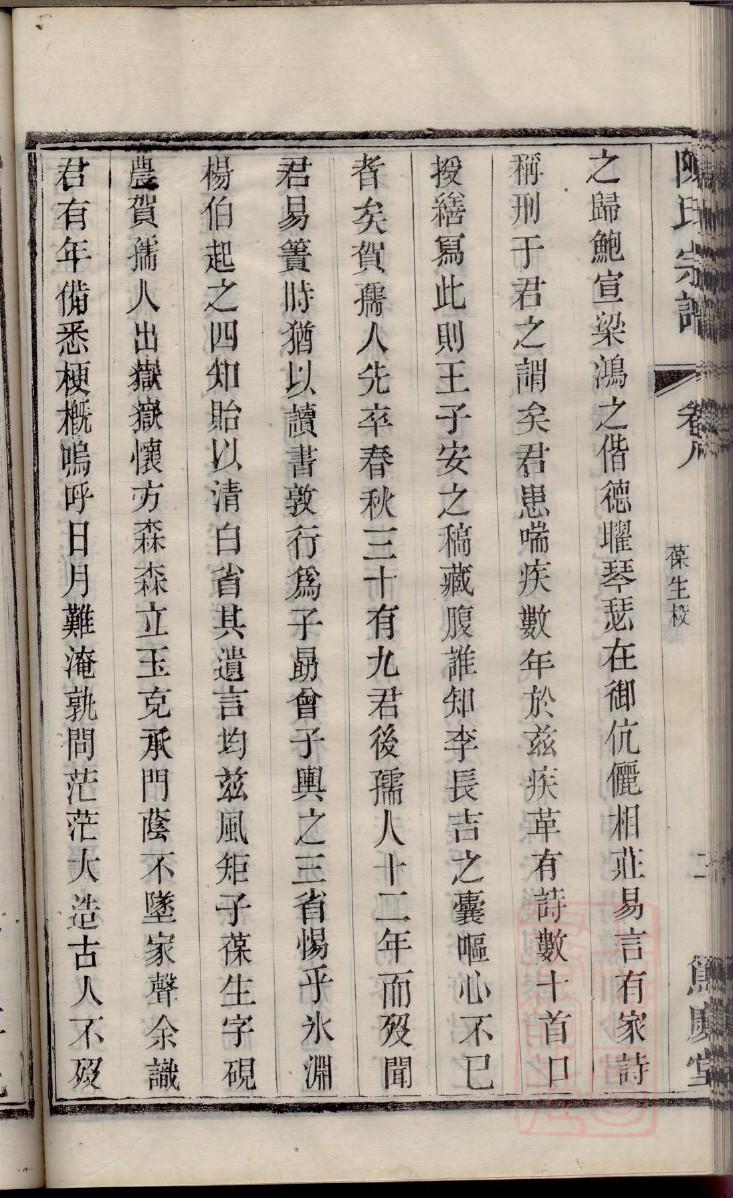 陳氏宗譜 卷八 葆生校 二 篤慶堂
之歸鮑宣梁鴻之偕德曜琴瑟在御伉儷相莊易言有家詩
稱刑于君之謂矣君患喘疾數年於茲疾革有詩數十首口
授繕寫此則王子安之稿藏腹誰知李長吉之囊嘔心不已
者矣賀孺人先卒春秋三十有九君後孺人十二年而歿聞
君易簀時猶以讀書敦行爲子勗曾子輿之三省惕乎氷淵
楊伯起之四知貽以清白省其遺言均茲風矩子葆生字硯
農賀孺人出嶽嶽懷方森森立玉克承門蔭不墜家聲余識
君有年備悉梗概嗚呼日月難淹孰問茫茫大造古人不歿